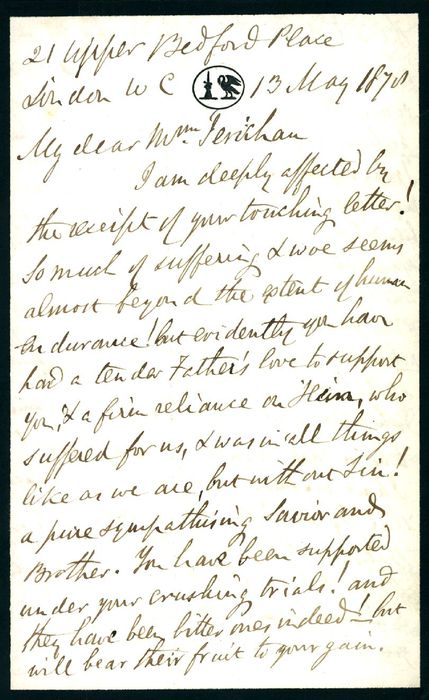 21 Upper Bedford Place
London W C 13 May 1878
My dear Mme Jerichau
I am deeply affected by
the receipt of your touching letter!
So much of suffering & woe seems
almost beyond the extent of human
endurance! but evidently you have
had a tender Father's love to support
you, & a firm reliance on Him, who
suffered for us, & was in all things
like as we are, but without sin!
a pure sympathising Savior and
Brother. You have been supported
under your crushing trials! and
they have been bitter ones indeed! but
will bear their fruit to your gain.